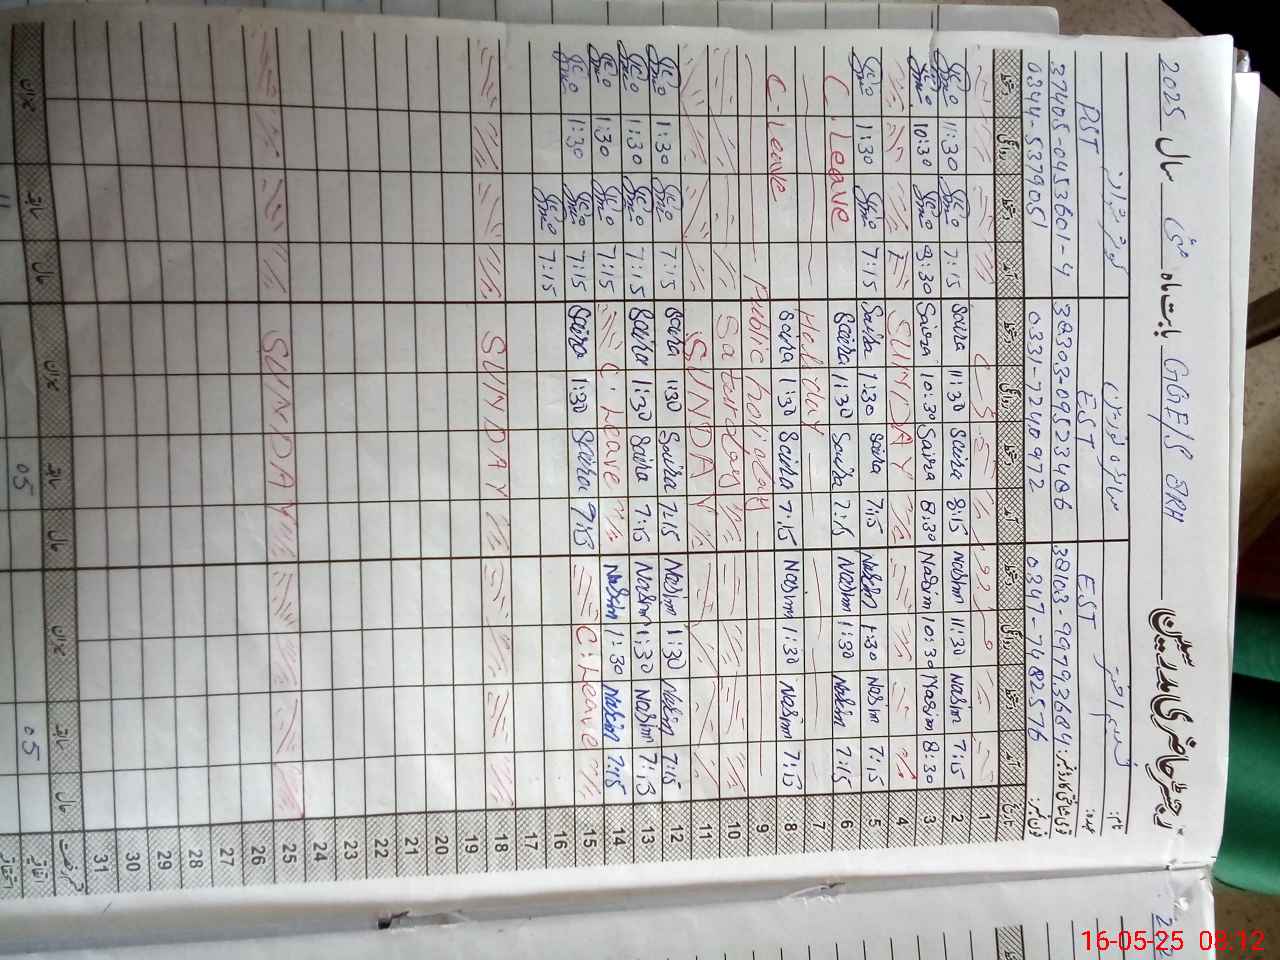 رجسٹر حاضری مدرسین GGE/S ORH بابت ماہ مئی سال 2025
نام:
عہدہ: EST EST PST
قومی شناختی کارڈ نمبر: 38103-9979368-4 38303-0952348-6 37405-0453601-4
فون نمبر: 0347-7482576 0331-7240972 0344-5379051
تاریخ آمد دستخط روانگی دستخط آمد دستخط روانگی دستخط آمد دستخط روانگی دستخط
1
2 7:15 Nasim 11:30 Nasim 8:15 Saira 11:30 Saira 7:15 11:30
3 8:30 Nasim 10:30 Nasim 8:30 Saira 10:30 Saira 8:30 10:30
4 SUNDAY
5 7:15 Nasim 1:30 Nasim 7:15 Saira 1:30 Saira 7:15 1:30
6 7:15 Nasim 1:30 Nasim 7:15 Saira 1:30 Saira C. Leave
7 Holiday
8 7:15 Nasim 1:30 Nasim 7:15 Saira 1:30 Saira C- Leave
9 Public holiday
10 Saterday
11 SUNDAY
12 7:15 Nasim 1:30 Nasim 7:15 Saira 1:30 Saira 7:15 1:30
13 7:15 Nasim 1:30 Nasim 7:15 Saira 1:30 Saira 7:15 1:30
14 7:15 Nasim 1:30 Nasim C. Leave 7:15 1:30
15 C. Leave 7:15 Saira 1:30 Saira 7:15 1:30
16 7:15
17
18 SUNDAY
19
20
21
22
23
24
25 SUNDAY
26
27
28
29
30
31
حال سابقہ میزان حال سابقہ میزان حال سابقہ میزان
05 05
16-05-25 08:12